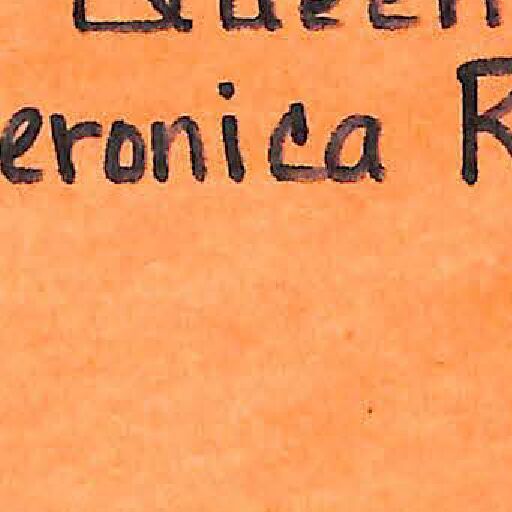 Queen
eronica R